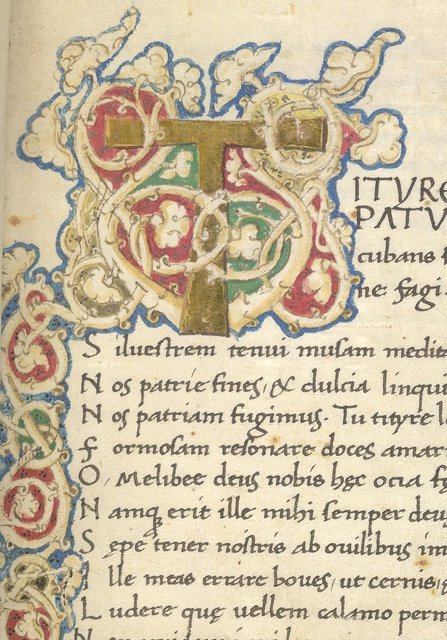 TITVRE
PATV
cubans
ne fagi.
Siluestrem tenui musam medit
Nos patrie fines, & dulcia linqui
Nos patriam fugimus. Tu tityre l
formosam resonare doces amar
O, Melibee deus nobis hęc ocia f
Namq; erit ille mihi semper deu
Sępe tener nostris ab ouilibus im
Ille meas errare boues, ut cernis,
Ludere quę uellem calamo perm